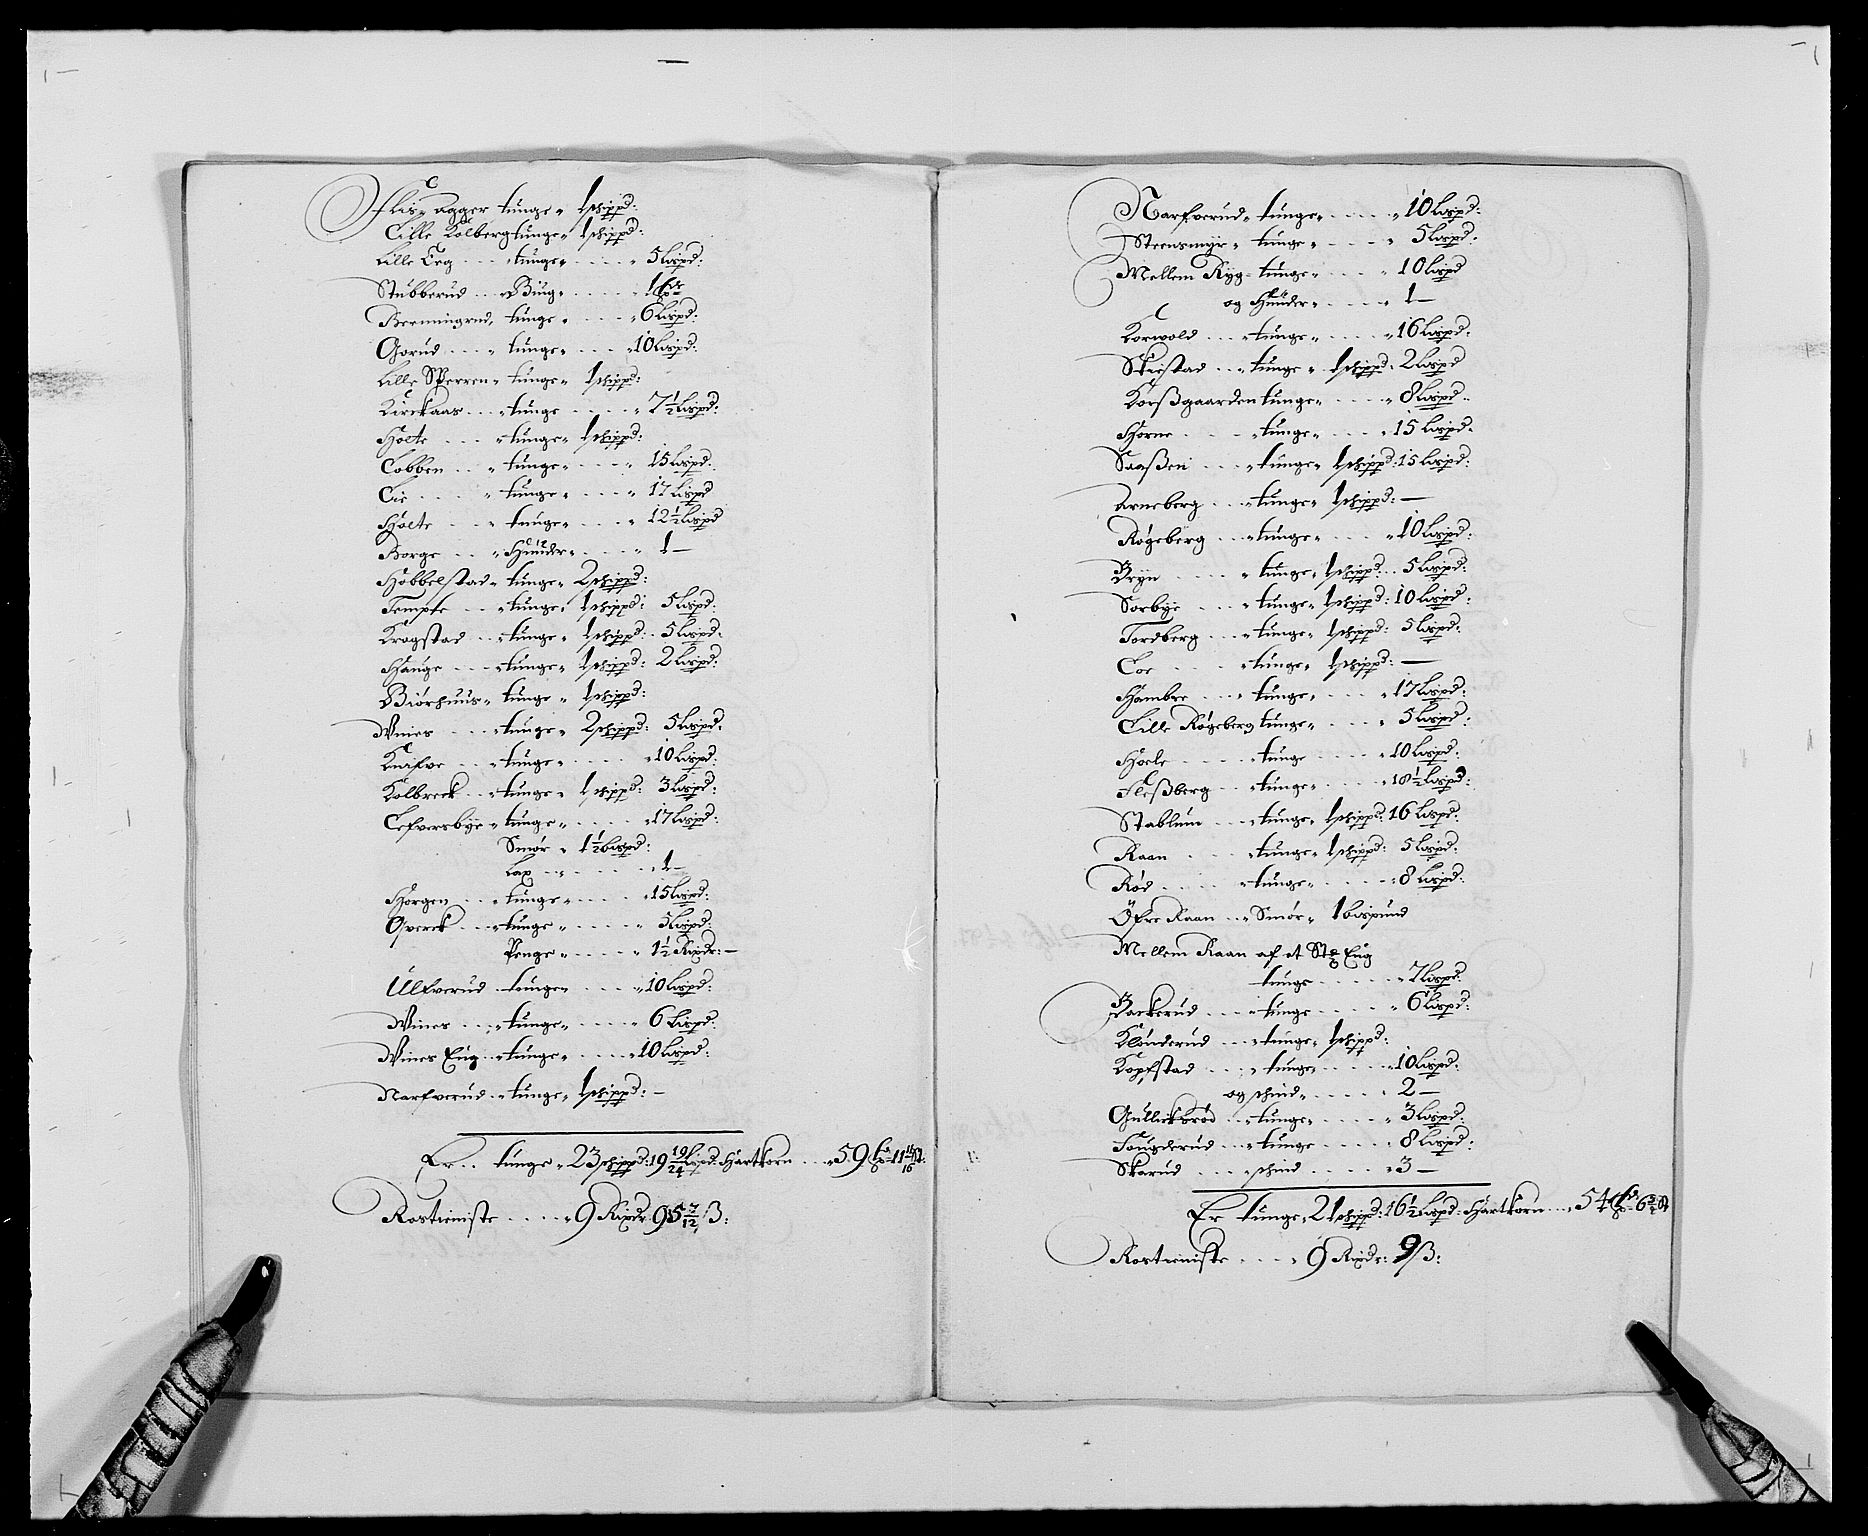 Flis agger tunge 1 schippd:
Lille Kolberg tunge 1 schippd:
Lille Eeg tunge 5 Lispd:
Stubberud Biug 1
tunge 6 Lispd:
Gorud tunge 10 Lispd:
Lille Sperren tunge 1 schippd:
Kirckaas tunge 7 1/2 Lispd:
Holte tunge 1 schippd:
Lobben tunge 15 Lispd.
Lie tunge 17 Lispd
Holte tunge 12 1/2 Lispd
Borge Huuder 1 —
Hobbelstad tunge 2 schippd:
Tempte tunge 1 schippd: 5 Lispd:
Krogstad tunge 1 schippd: 5 Lispd.
Hauge tunge 1 schippd: 2 Lispd:
Biörhuus tunge 1 schippd:
Wines tunge 2 schippd: 5 Lispd.
Knifve tunge 10 Lispd:
Kolbreck tunge 1 schippd: 3 Lispd:
Lefversbye tunge 17 Lispd:
Smör 1 1/2 bispd:
Lax 1 —
Horgen tunge 15 Lispd:
Qverck tunge 5 Lispd:
Penge 1 1/2 Rixdr: —
Ulfverud tunge 10 Lispd:
Wines tunge 6 Lispd:
Wines Eng tunge 10 Lispd:
Narfverud tunge 1 schippd: —
Er tunge 23 schippd: 19 19/24 Lispd: Hartkorn 59 11
Rostieniste 9 Rixdr 95 7/12 ß:
Narfverud tunge 10 Lispd:
Steensmyr tunge 5 Lispd:
Mellem Ryg tunge 10 Lispd
og Huuder 1 —
Korvold tunge 16 Lispd:
Skiestad tunge 1 schippd. 2 Lispd
Korßgaarden tunge 8 Lispd
Horne tunge 15 Lispd
Saaßen tunge 1 schippd: 15 Lispd:
Arneberg tunge 1 schippd: —
Røgeberg tunge 10 Lispd:
Bryn tunge 1 schippd: 5 Lispd:
Sorbye tunge 1 schippd: 10 Lispd:
Fordberg tunge 1 schippd: 5 Lispd:
Loe tunge 1 schippd: —
Hambre tunge 17 Lispd:
Lille Røgeberg tunge 5 Lispd:
Hoele tunge 10 Lispd:
Fleßberg tunge 18 1/2 Lispd
Stablum tunge 1 schippd: 16 Lispd:
Raan tunge 1 schippd: 5 Lispd:
Rød tunge 8 Lispd:
Öfre Raan Smör 1 bispund
Mellem Raan af et Eng
tunge 7 Lispd:
Backerud tunge 6 Lispd:
Klonderud tunge 1 schippd:
Kopstad tunge 10 Lispd:
og schind 2 —
Gullicksröd tunge 3 Lispd:
Fougderud tunge 8 Lispd:
Skarud schind 3 —
Er tunge 21 schippd: 16 1/2 Lispd: Hartkorn 54 6
Rostieniste 9 Rixdr: 9 ß: